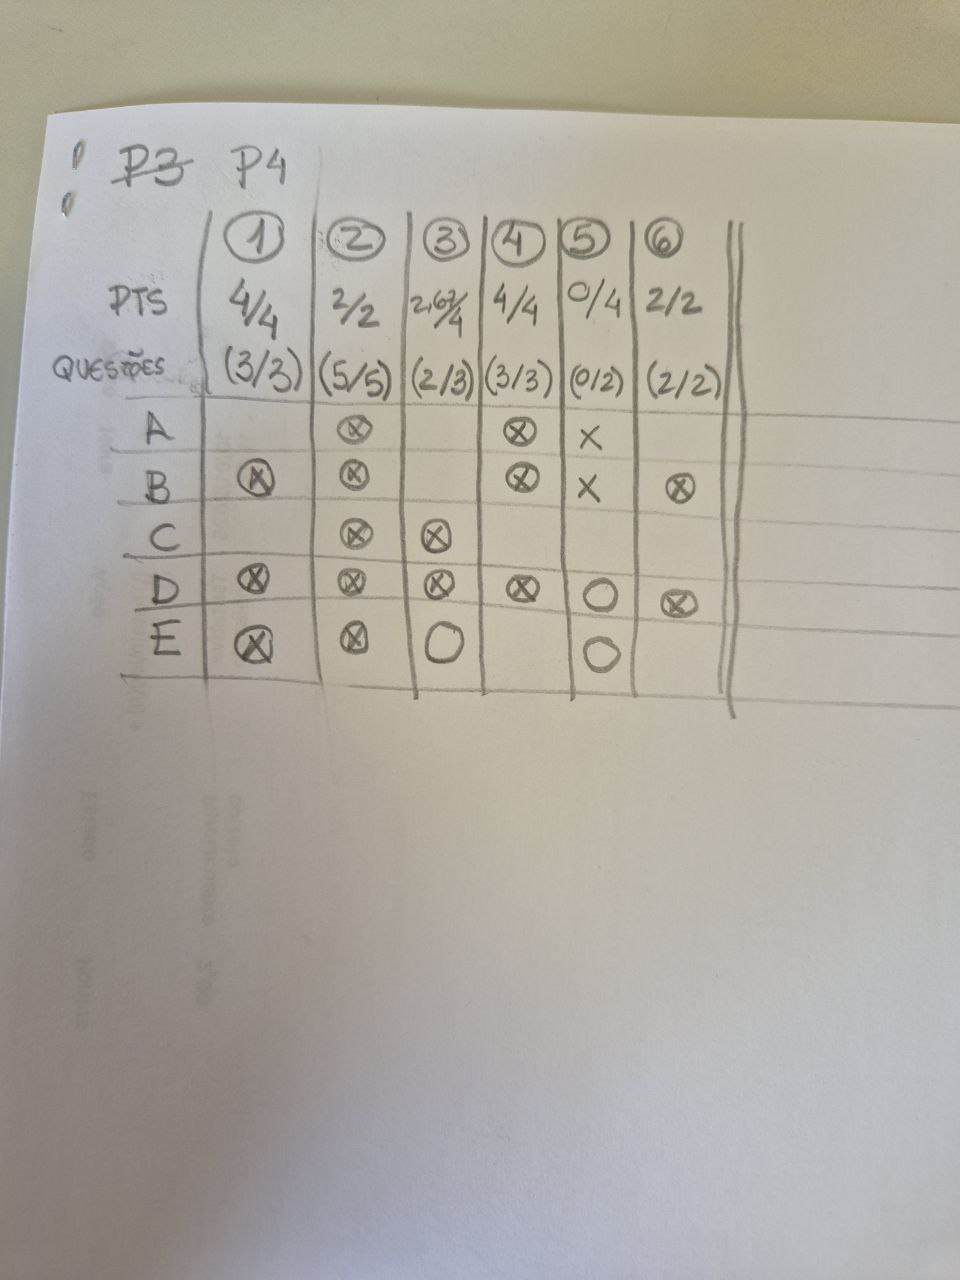 P3 P4
① ② ③ ④ ⑤ ⑥
PTS 4/4 2/2 2,67/4 4/4 0/4 2/2
QUESTÕES (3/3) (5/5) (2/3) (3/3) (0/2) (2/2)
A ⊗ ⊗ X
B ⊗ ⊗ ⊗ X ⊗
C ⊗ ⊗
D ⊗ ⊗ ⊗ ⊗ O ⊗
E ⊗ ⊗ O O